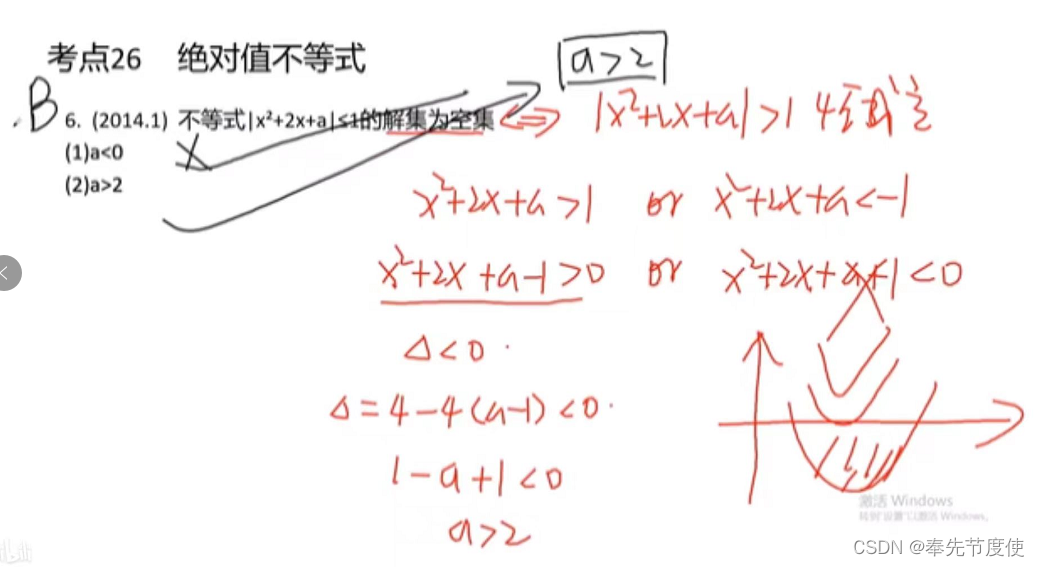 考点26 绝对值不等式
a>2
B
6. (2014.1) 不等式|x²+2x+a|≤1的解集为空集 ⇔ |x²+2x+a|>1
(1)a<0 X
(2)a>2
x²+2x+a>1 or x²+2x+a<-1
x²+2x+a-1>0 or x²+2x+a+1<0
Δ<0
Δ=4-4(a-1)<0
1-a+1<0
a>2
激活 Windows
转到"设置"以激活 Windows。
CSDN @奉先节度使